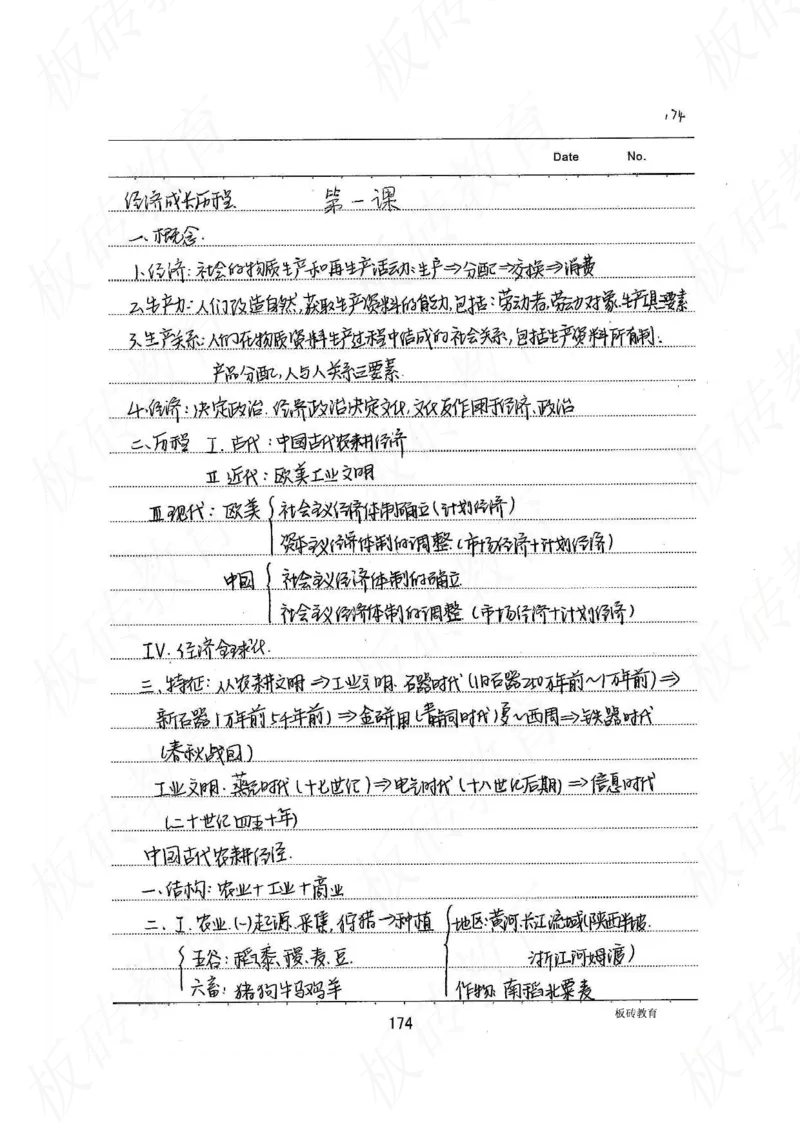 174
Date No.
经济成长历程 第一课
一、概念.
1.经济:社会的物质生产和再生产活动:生产⇒分配⇒交换⇒消费
2.生产力:人们改造自然,获取生产资料的能力,包括:劳动者,劳动对象.生产工具三要素
3.生产关系:人们在物质资料生产过程中结成的社会关系,包括生产资料所有制:
产品分配,人与人关系三要素.
4.经济:决定政治.经济政治决定文化,文化反作用于经济、政治
二、历程 I.古代:中国古代农耕经济
II 近代:欧美工业文明
III 现代:欧美{社会主义经济体制确立(计划经济)
资本主义经济体制的调整.(市场经济+计划经济)
中国{社会主义经济体制的确立
社会主义经济体制的调整 (市场经济+计划经济)
IV.经济全球化.
三、特征:从农耕文明⇒工业文明.石器时代(旧石器250万年前~1万年前)⇒
新石器1万年前5千年前)⇒金石并用(青铜时代)夏~西周⇒铁器时代
(春秋战国)
工业文明.蒸汽时代(十七世纪)⇒电气时代(十八世纪后期)⇒信息时代
(二十世纪四五十年)
中国古代农耕经济.
一、结构:农业+工业+商业
二、I.农业.(一)起源.采集,狩猎→种植{地区:黄河.长江流域(陕西半坡.
{五谷:稻、黍、稷、麦、豆. 浙江河姆渡)
六畜:猪狗牛马鸡羊 作物:南稻北粟麦
174
板砖教育